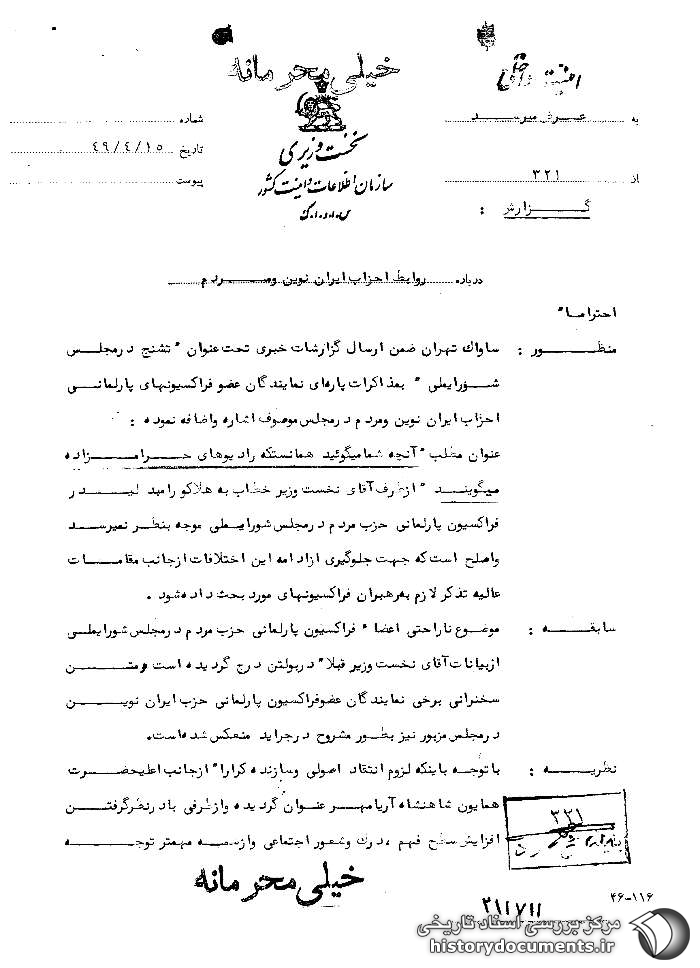 امنیت داخلی
خیلی محرمانه
به عرض میرسد
شماره
نخست وزیری
تاریخ ۴۹/۴/۱۵
سازمان اطلاعات و امنیت کشور
از ۳۲۱
پیوست
س.ا.و.ا.ک
گزارش :
درباره روابط احزاب ایران نوین ومردم
احتراما"
منظور : ساواك تهران ضمن ارسال گزارشات خبری تحت عنوان " تشنج درمجلس
شورایملی " بمذاکرات پاره‌ای نمایندگان عضو فراکسیونهای پارلمانی
احزاب ایران نوین ومردم درمجلس موصوف اشاره واضافه نموده :
عنوان مطلب "آنچه شمامیگوئید همانستکه رادیوهای حرامزاده
میگویند " ازطرف آقای نخست وزیر خطاب به هلاکو رامبد لیدر
فراکسیون پارلمانی حزب مردم درمجلس شورایملی موجه بنظر نمیرسد
واصلح است که جهت جلوگیری ازادامه این اختلافات ازجانب مقامات
عالیه تذکر لازم به‌رهبران فراکسیونهای مورد بحث داده‌شود .
سابقه : موضوع ناراحتی اعضا" فراکسیون پارلمانی حزب مردم درمجلس شورایملی
ازبیانات آقای نخست وزیر قبلا" دربولتن درج گردیده است ومتن
سخنرانی برخی نمایندگان عضوفراکسیون پارلمانی حزب ایران نوین
درمجلس مزبور نیز بطور مشروح درجراید منعکس شده‌است.
نظریه : باتوجه باینکه لزوم انتقاد اصولی وسازنده کرارا" ازجانب اعلیحضرت
همایون شاهنشاه آریامهر عنوان گردیده وازطرفی بادرنظرگرفتن
افزایش سطح فهم ،درك وشعور اجتماعی وازسه مهمتر توجه
۳۲۱
خیلی محرمانه
۴۶-۱۱۶
۲۱۱۷۱۱
مرکز بررسی اسناد تاریخی
historydocuments.ir